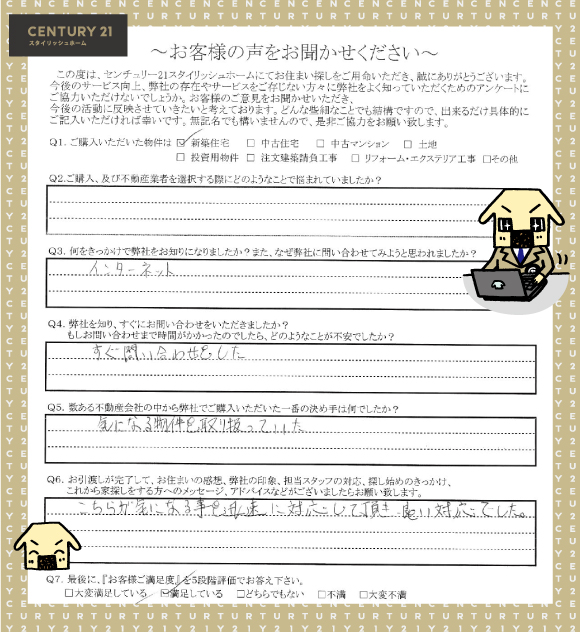 CENTURY 21
スタイリッシュホーム
～お客様の声をお聞かせください～
この度は、センチュリー21スタイリッシュホームにてお住まい探しをご用命いただき、誠にありがとうございます。
今後のサービス向上、弊社の存在やサービスをご存じない方々に弊社をよく知っていただくためのアンケートに
ご協力いただけないでしょうか。お客様のご意見をお聞かせいただき、
今後の活動に反映させていきたいと考えております。どんな些細なことでも結構ですので、出来るだけ具体的に
ご記入いただければ幸いです。無記名でも構いませんので、是非ご協力をお願い致します。
Q1. ご購入いただいた物件は ☑ 新築住宅 □ 中古住宅 □ 中古マンション □ 土地
□ 投資用物件 □ 注文建築請負工事 □ リフォーム・エクステリア工事 □その他
Q2.ご購入、及び不動産業者を選択する際にどのようなことで悩まれていましたか？
Q3. 何をきっかけで弊社をお知りになりましたか？また、なぜ弊社に問い合わせてみようと思われましたか？
インターネット
Q4. 弊社を知り、すぐにお問い合わせをいただきましたか？
もしお問い合わせまで時間がかかったのでしたら、どのようなことが不安でしたか？
すぐ問い合わせをした
Q5. 数ある不動産会社の中から弊社でご購入いただいた一番の決め手は何でしたか？
気になる物件を取り扱っていた
Q6. お引渡しが完了して、お住まいの感想、弊社の印象、担当スタッフの対応、探し始めのきっかけ、
これから家探しをする方へのメッセージ、アドバイスなどがございましたらお願い致します。
こちらが気になる事を迅速に対応して頂き 良い対応でした。
Q7. 最後に、『お客様ご満足度』を5段階評価でお答え下さい。
□大変満足している ☑満足している □どちらでもない □不満 □大変不満